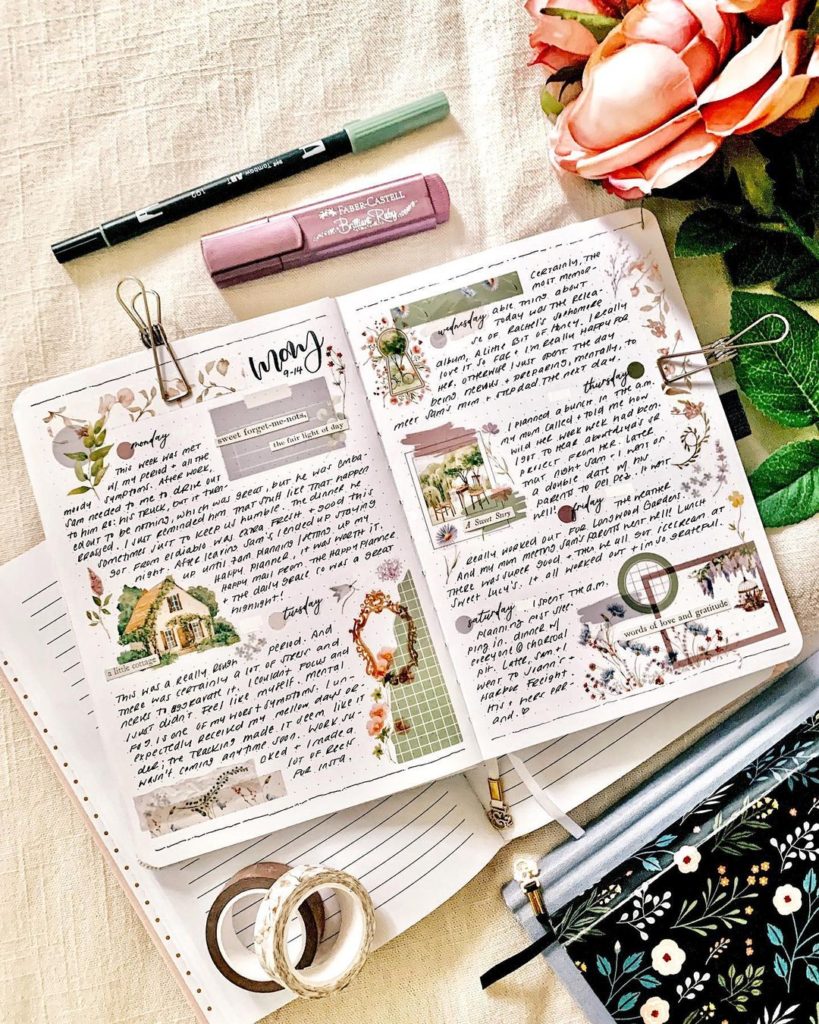 Tombow
FABER-CASTELL
Brilliant Ruby
may
9-14
sweet forget-me-nots,
the fair light of day
monday
THIS WEEK WAS MET
W/ MY PERIOD + ALL THE
MOODY SYMPTOMS. AFTER WORK,
SAM NEEDED TO ME TO DRIVE OUT
TO HIM RE: HIS TRUCK, BUT IT TURN-
ED OUT TO BE NOTHING, WHICH WAS GREAT, BUT HE WAS EMBA-
RRASSED. I JUST REMINDED HIM THAT STUFF LIKE THAT HAPPEN
SOMETIMES JUST TO KEEP US HUMBLE. THE DINNER HE
GOT FROM EL DIABLO WAS EXTRA FRESH + GOOD THIS
NIGHT. AFTER LEAVING SAM'S I ENDED UP STAYING
UP UNTIL 1AM PLANNING LETTING UP MY
HAPPY PLANNER. IT WAS WORTH IT.
HAPPY MAIL FROM THE HAPPY PLANNER
+ THE DAILY GRACE CO WAS A GREAT
HIGHLIGHT!
a little cottage
tuesday
THIS WAS A REALLY ROUGH PERIOD. AND
THERE WAS CERTAINLY A LOT OF STRESS AND
NERVES TO AGGRAVATE IT. I COULDN'T FOCUS AND
I JUST DIDN'T FEEL LIKE MYSELF. MENTAL
FOG IS ONE OF MY WORST SYMPTOMS. I UN-
EXPECTEDLY RECEIVED MY MELLOW DAYS OR-
DER; THE TRACKING MADE IT SEEM LIKE IT
WASN'T COMING ANYTIME SOON. WORK SU-
CKED + I MADE A
LOT OF REELS
FOR INSTA.
wednesday
CERTAINLY, THE
MOST MEMOR-
ABLE THING ABOUT
TODAY WAS THE RELEA-
SE OF RACHEL'S SOPHOMORE
ALBUM, A LITTLE BIT OF HONEY. I REALLY
LOVE IT SO FAR + I'M REALLY HAPPY FOR
HER. OTHERWISE I JUST SPENT THE DAY
BEING NERVOUS + PREPARING, MENTALLY, TO
MEET SAM'S MOM + STEPDAD THE NEXT DAY.
thursday
I PLANNED A BUNCH IN THE A.M.
MY MOM CALLED + TOLD ME HOW
WILD HER WORK WEEK HAD BEEN.
PROJECT FROM HER. LATER
THAT NIGHT SAM + I WENT ON
A DOUBLE DATE W/ HIS
PARENTS TO DEL PEZ. IT WENT
WELL!
A Sweet Story
friday
THE WEATHER
REALLY WORKED OUT FOR LONGWOOD GARDENS.
AND MY MOM MEETING SAM'S PARENTS WENT WELL! LUNCH
THERE WAS SUPER GOOD + THEN WE ALL GOT ICECREAM AT
SWEET LUCY'S. IT ALL WORKED OUT + I'M SO GRATEFUL.
saturday
I SPENT THE A.M.
PLANNING MOST SLEE-
PING IN. DINNER W/
EVERYONE @ CHARCOAL
PIT. LATER, SAM + I
WENT TO JOANN'S +
HARBOR FREIGHT-
HIS + HERS ERR-
AND.
words of love and gratitude